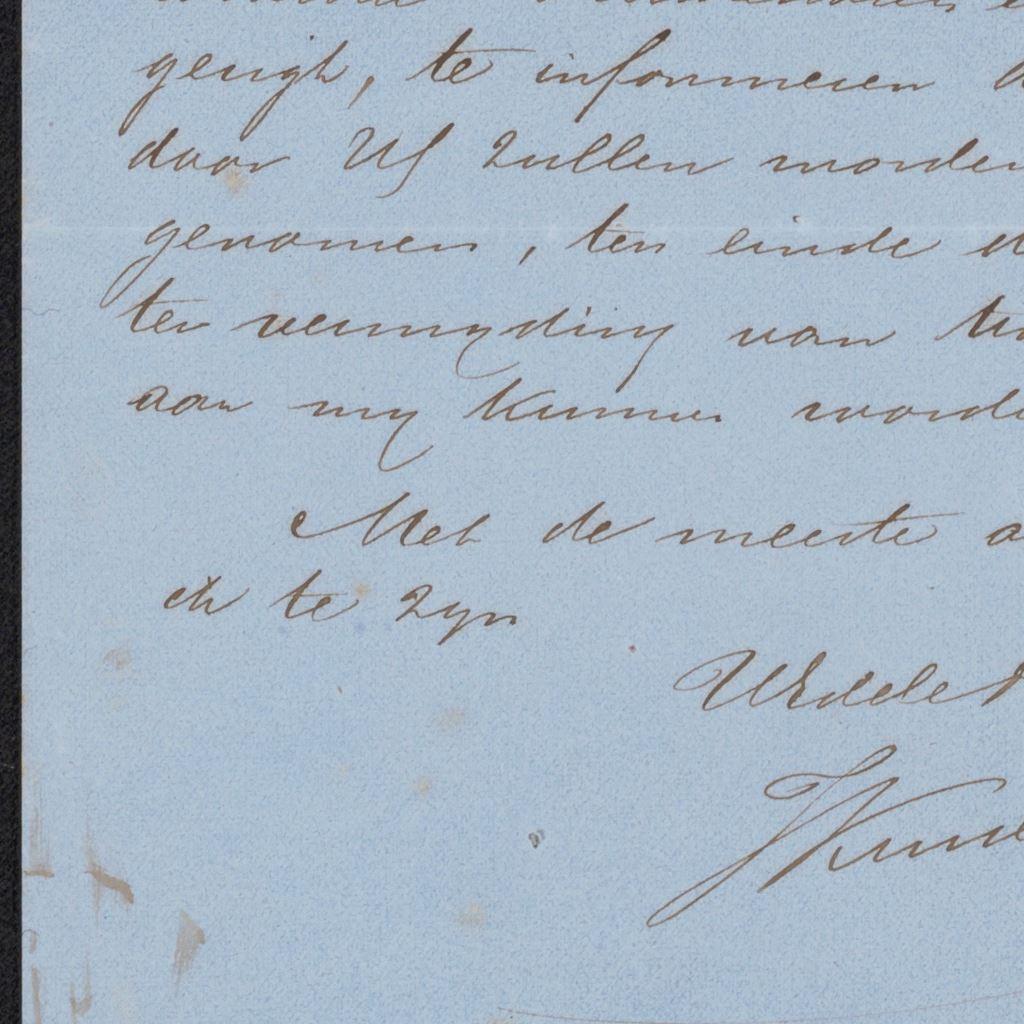 gerigt, te informeren
door UE zullen worden
genomen, ten einde
ter vermyding van
aan my kunnen worde
Met de meeste
ik te zyn
UEdele